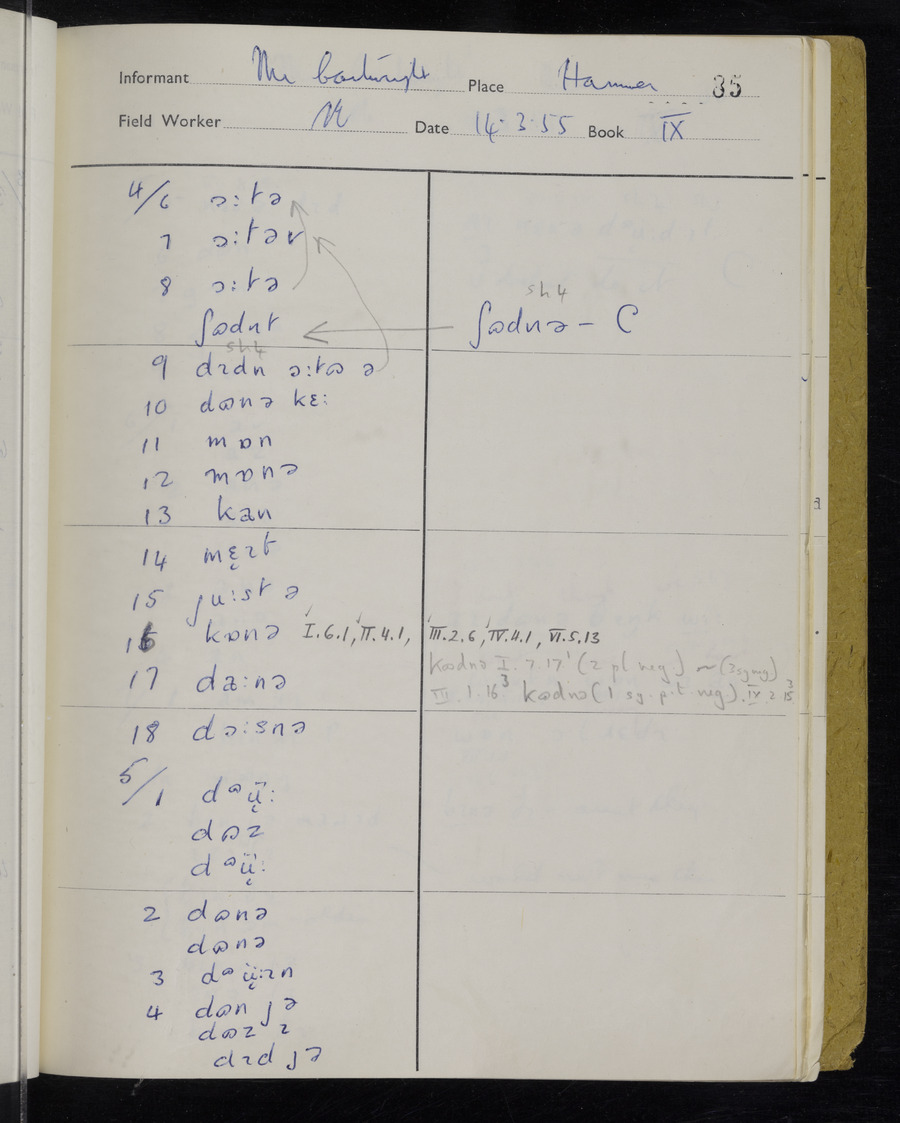 Informant Mr Place Hanmer 35
Field Worker Date 14·3·55 Book IX
4/6 ɔːtə
7 ɔːtər
8 ɔːtə
ʃɷdnt
sh 4
ʃɷdnə – C
sh 4
9 dɪdn ɔːtɷ ə
10 dɷnə kɛː
11 mɒn
12 mɒnə
13 kan
14 mɛ̨ɪt
15 juːst ə
16 kɒnə I.6.1, II.4.1, III.2.6, IV.4.1, VI.5.13
kɷdnə I.7.17¹ (2 pl neg) ~ (3 sg neg)
III.1.16³ kɷdnə (1 sg. p.t. neg). IV 2 15³
17 dæːnə
18 dəːsnə
5/1 dᵊü̜ː
dɷz
dᵊü̜ː
2 dɷnə
dɷnə
3 dᵊü̜ːɪn
4 dɷn jə
dɷz ɪ
dɪd jə